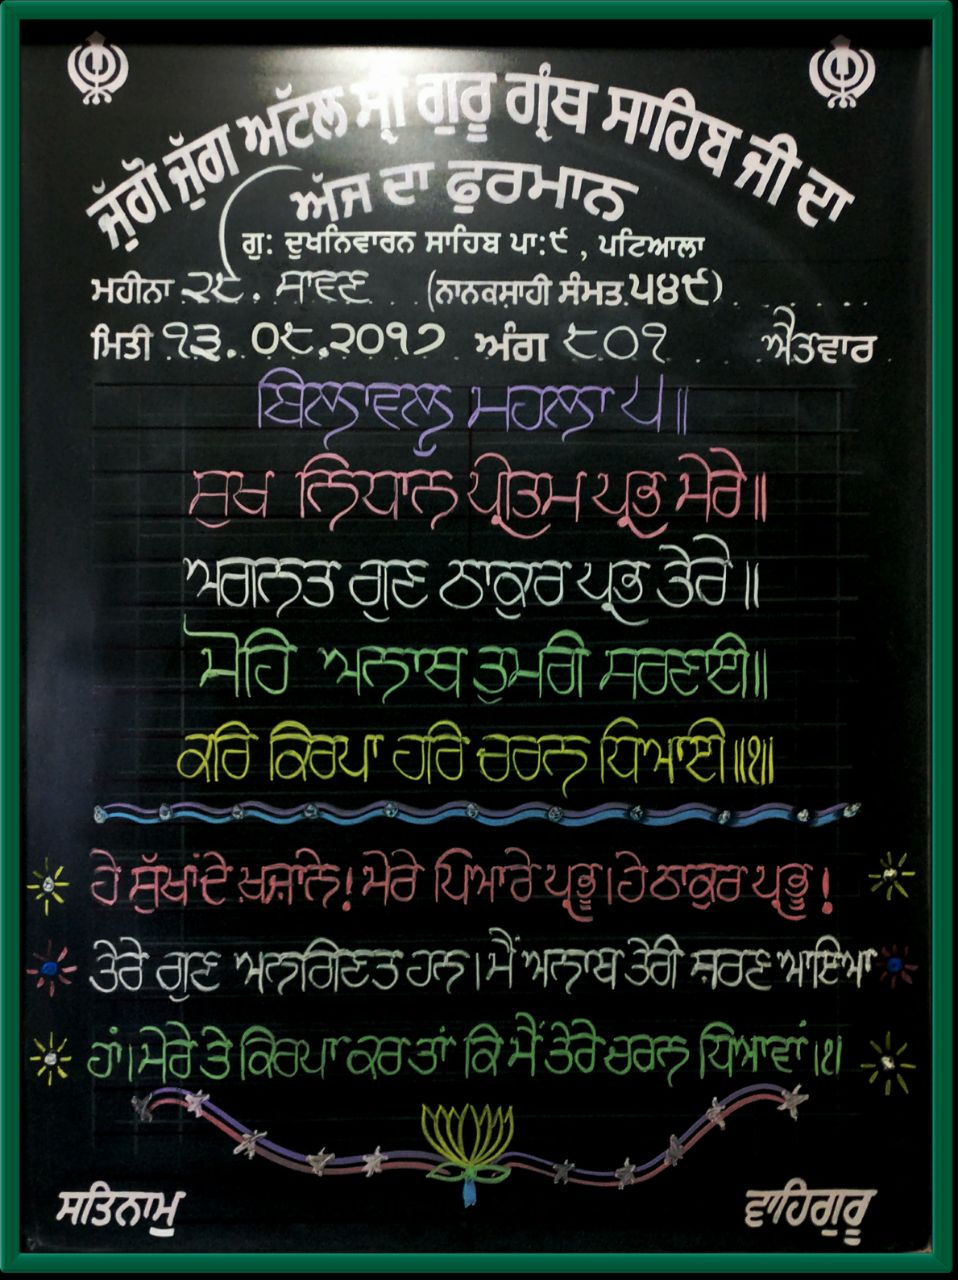 ਜੁੱਗੋ ਜੁੱਗ ਅੱਟਲ ਸ੍ਰੀ ਗੁਰੂ ਗ੍ਰੰਥ ਸਾਹਿਬ ਜੀ ਦਾ
ਅੱਜ ਦਾ ਫੁਰਮਾਨ
ਗੁ: ਦੁਖਨਿਵਾਰਨ ਸਾਹਿਬ ਪਾ:੯, ਪਟਿਆਲਾ
ਮਹੀਨਾ ੨੯. ਸਾਵਣ (ਨਾਨਕਸ਼ਾਹੀ ਸੰਮਤ ੫੪੯)
ਮਿਤੀ ੧੩. ੦੮.੨੦੧੭ ਅੰਗ ੮੦੧ ਐਤਵਾਰ
ਬਿਲਾਵਲੁ ਮਹਲਾ ੫॥
ਸੁਖ ਨਿਧਾਨ ਪ੍ਰੀਤਮ ਪ੍ਰਭ ਮੇਰੇ॥
ਅਗਨਤ ਗੁਣ ਠਾਕੁਰ ਪ੍ਰਭ ਤੇਰੇ॥
ਮੋਹਿ ਅਨਾਥ ਤੁਮਰੀ ਸਰਣਾਈ॥
ਕਰਿ ਕਿਰਪਾ ਹਰਿ ਚਰਨ ਧਿਆਈ॥੧॥
ਹੇ ਸੁੱਖਾਂ ਦੇ ਖ਼ਜ਼ਾਨੇ! ਮੇਰੇ ਪਿਆਰੇ ਪ੍ਰਭੂ। ਹੇ ਠਾਕੁਰ ਪ੍ਰਭੂ!
ਤੇਰੇ ਗੁਣ ਅਨਗਿਣਤ ਹਨ। ਮੈਂ ਅਨਾਥ ਤੇਰੀ ਸ਼ਰਣ ਆਇਆ
ਹਾਂ। ਮੇਰੇ ਤੇ ਕਿਰਪਾ ਕਰ ਤਾਂ ਕਿ ਮੈਂ ਤੇਰੇ ਚਰਨ ਧਿਆਵਾਂ।੧।
ਸਤਿਨਾਮੁ ਵਾਹਿਗੁਰੂ